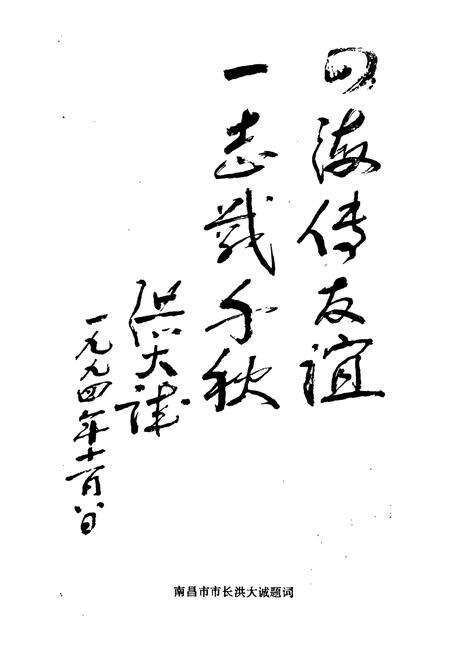 四海传友谊
一志载千秋
洪大诚
一九九四年十一月八日
南昌市市长洪大诚题词